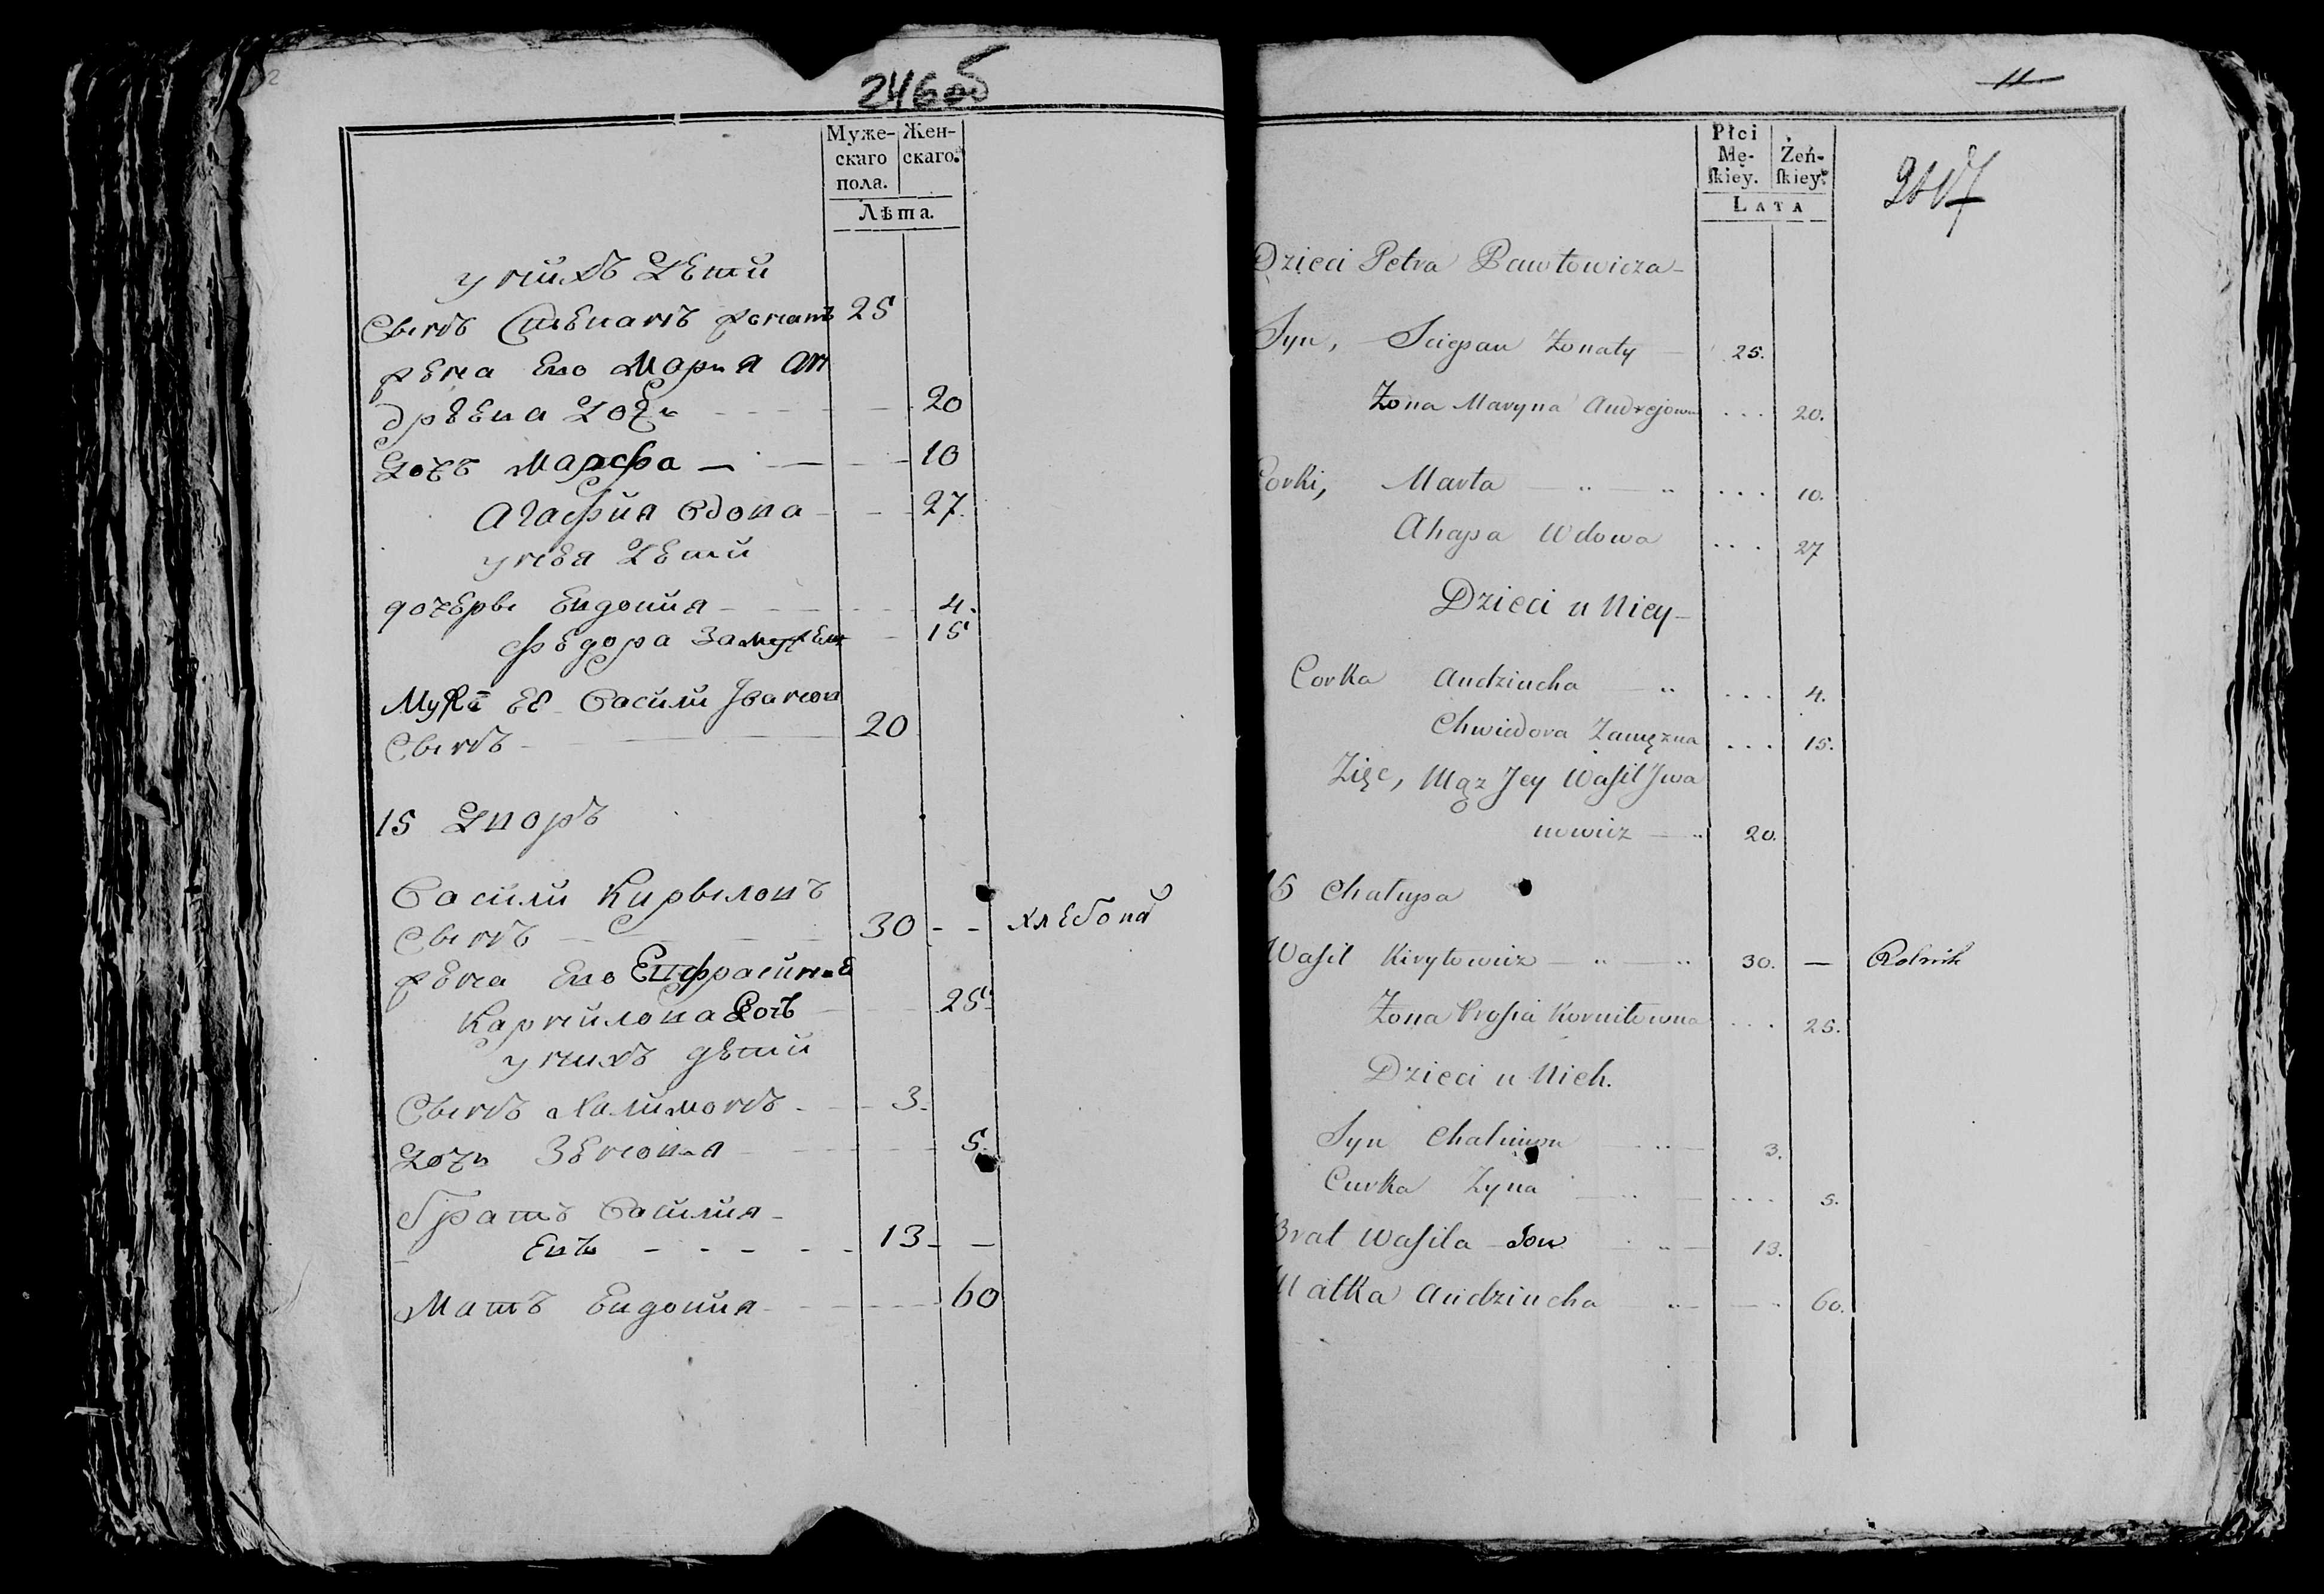 246об
Муже-
скаго
пола.
Жен-
скаго.
Лѣта.
у нихъ дети
Сынъ Степанъ женатъ 25
жена Ево Мария Ан
дрѣева дочь 20
дочь Марфа 10
Агафия вдова 27
у нея дети
дочеры Евдокия 4.
Федора Замужем 15
Мужъ ЕЕ Василии Іванов
Сынъ 20
15 дворъ
Василии Кирыловъ
Сынъ 30 - - хлебопа
жена Ево Ефрасинья
Карнилова доч 25
у нихъ дѣти
Сынъ Халимонъ 3.
дочь Зеновия 5.
братъ Василия
13 -
Мать Евдокия 60
11
Płci
Mę-
ſkiey.
Żeń-
ſkiey.
LATA
Dzieci Petra Pawłowicza
Syn, Sciepan Żonaty 25.
Żona Maryna Andrejowna ... 20.
Corki, Marta ... 10.
Ahapa Wdowa ... 27
Dzieci u Niey
Corka Audziucha ... 4.
Chwiedora Zamęzna ... 15.
Zięc, Mąz Jey Waſil Jwa
nowicz 20.
15 Chałupa
Waſil Kiryłowicz 30. — Rolnik
Żona Proſia Korniłowna ... 25.
Dzieci u Nich.
Syn Chalimon 3.
Curka Zyna ... 5.
Brat Waſila 13.
Matka Audziucha 60.